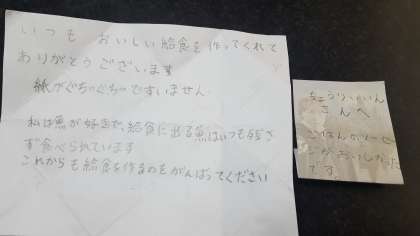 いつも おいしい給食を作ってくれて
ありがとうございます
紙がぐちゃぐちゃですいません
私は魚が好きで、給食に出る魚はいつも残さ
ず食べられています
これからも給食を作るのをがんばってください
ちょうりいん
さんへ
ごはん
がおいしかった
です。